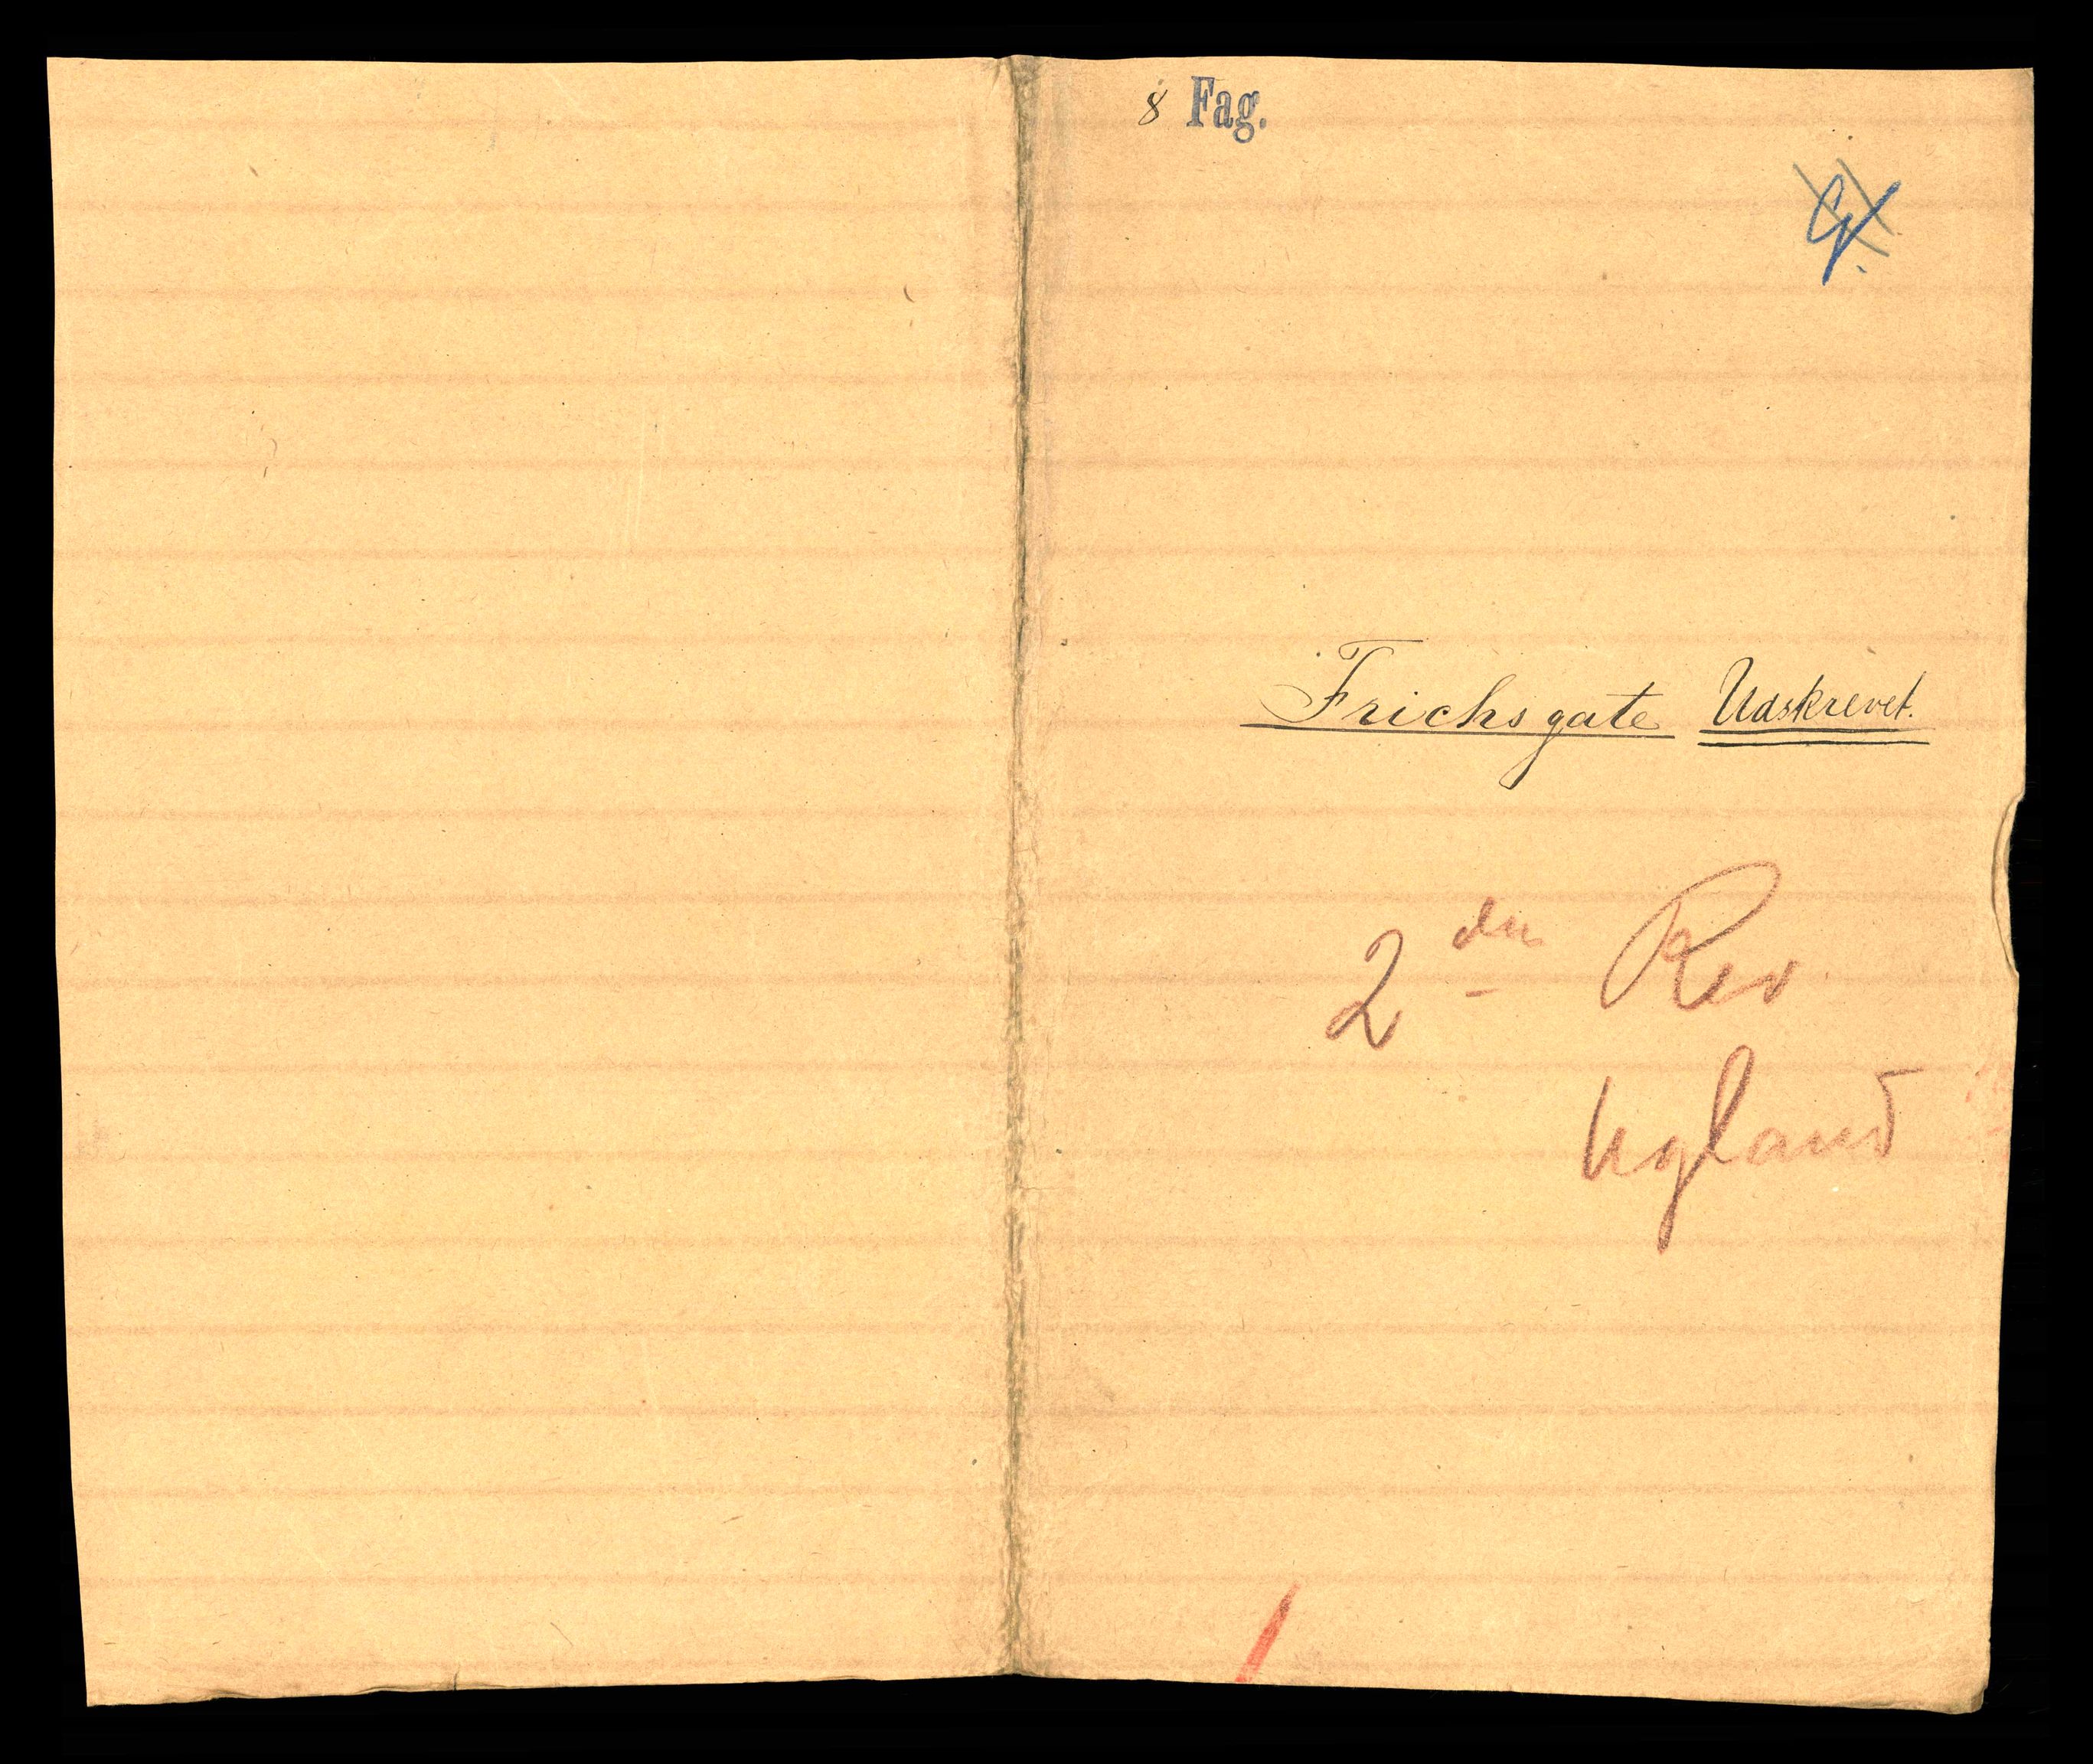 8 Fag.
Frichsgate Udskrevet.
2den Rev
Ugland